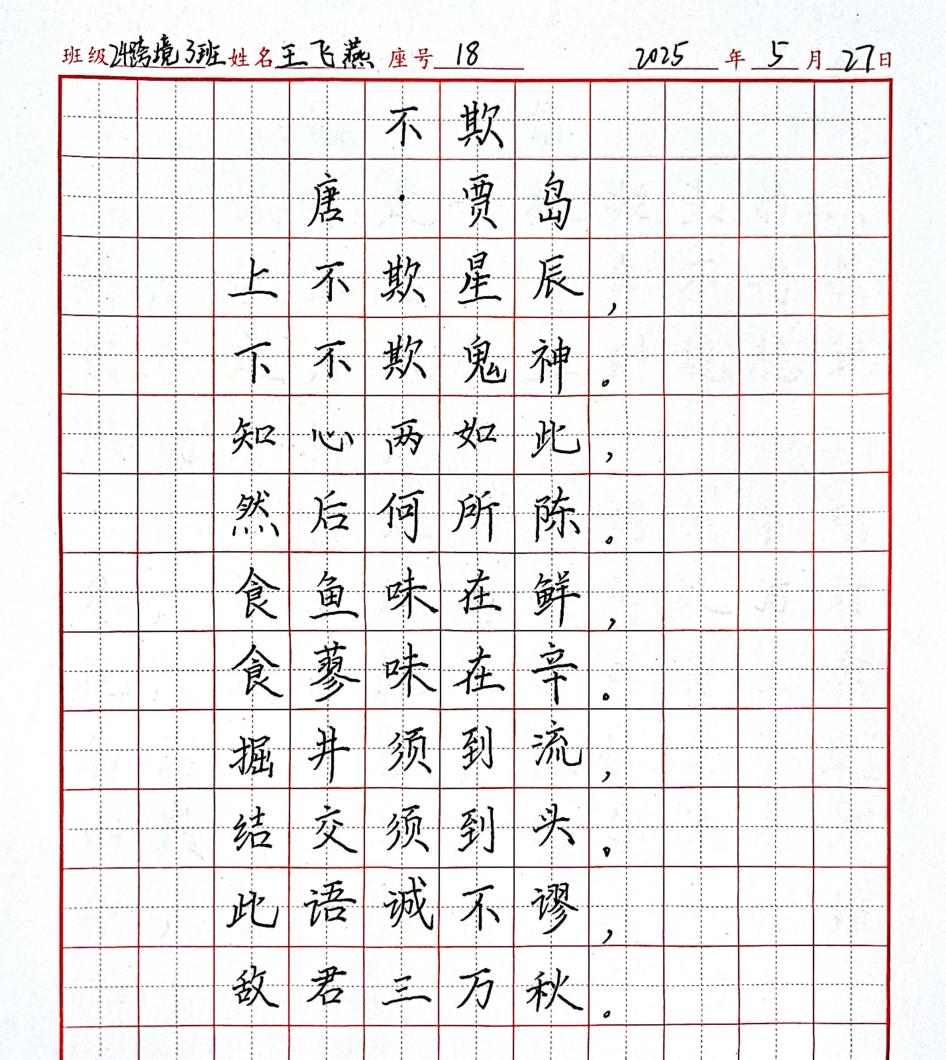 班级24跨境3班姓名王飞燕 座号18 2025年5月27日
不欺
唐·贾岛
上不欺星辰，
下不欺鬼神。
知心两如此，
然后何所陈。
食鱼味在鲜，
食蓼味在辛。
掘井须到流，
结交须到头。
此语诚不谬，
敌君三万秋。